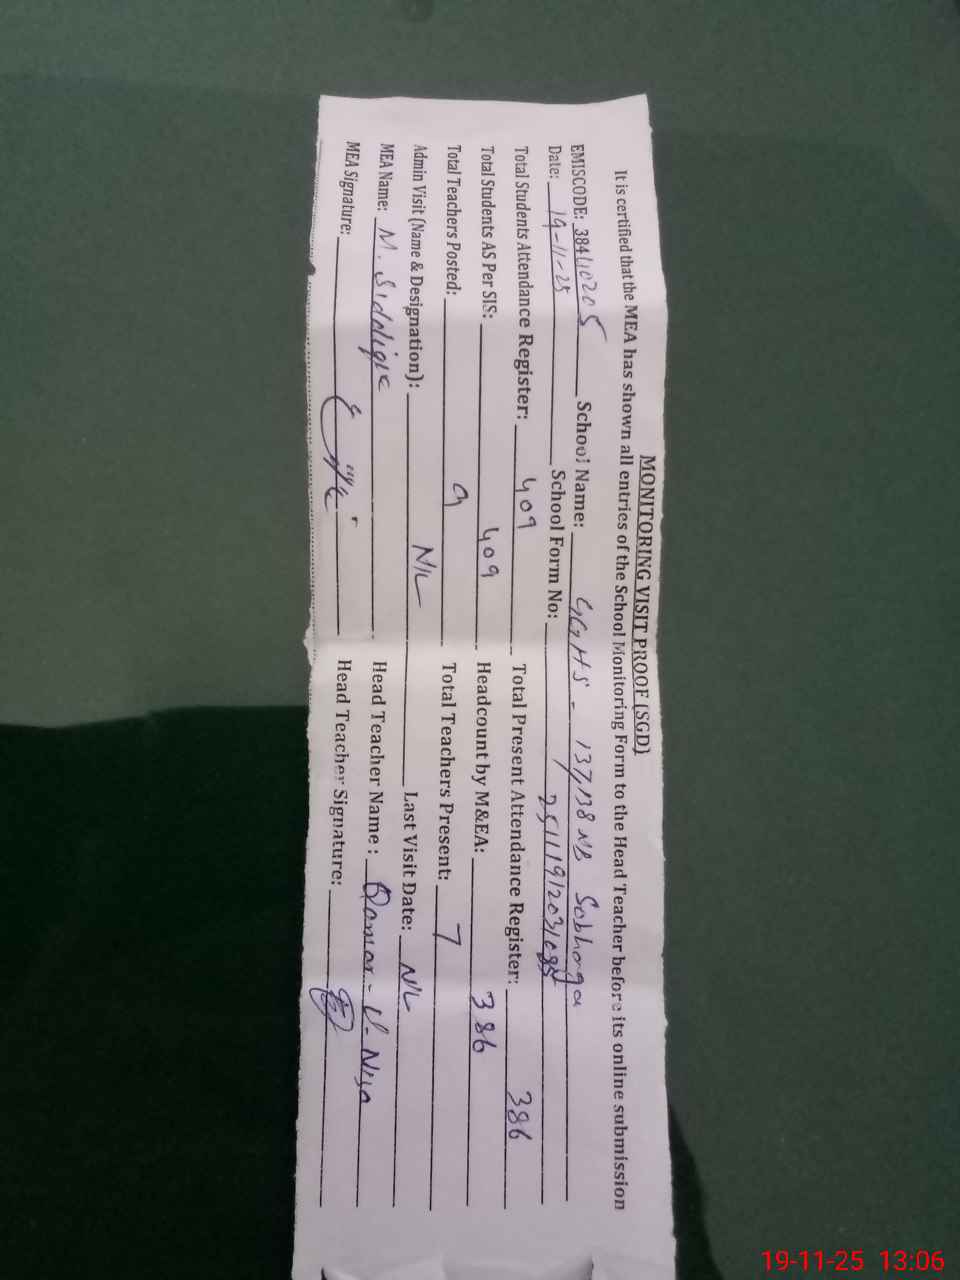 MONITORING VISIT PROOF (SGD)
It is certified that the MEA has shown all entries of the School Monitoring Form to the Head Teacher before its online submission
EMISCODE: 384110205 School Name: GGHS - 137,138 NB Sobhaga
Date: 19-11-25 School Form No: 2511191203
Total Students Attendance Register: 409 Total Present Attendance Register: 386
Total Students AS Per SIS: 409 Headcount by M&EA: 386
Total Teachers Posted: 9 Total Teachers Present: 7
Admin Visit (Name & Designation): NIL Last Visit Date: NIL
MEA Name: M. Siddique Head Teacher Name : Qamar-U-Nisa
MEA Signature: Head Teacher Signature:
19-11-25 13:06